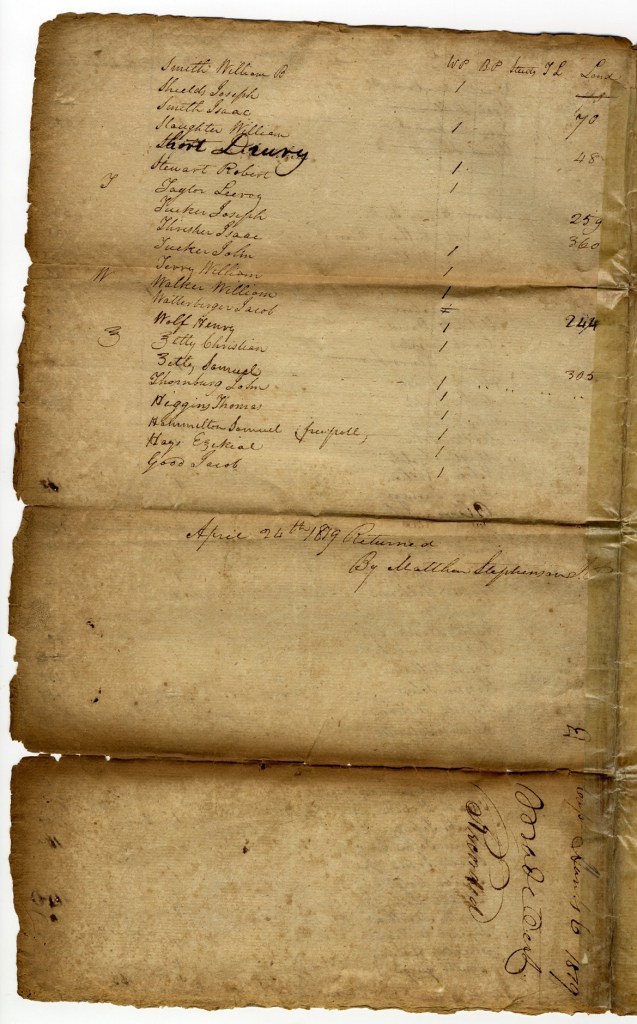 Smith William B W P B P Studs T L Land
Shields Joseph 1
Smith Isaac 70
Slaughter William 1
Short Drury 48
Stewart Robert 1
T Taylor Leeroy 1
Tucker Joseph 259
Thrisher Isaac 360
Tucker John 1
Terry William 1
W Walker William 1
Watterberger Jacob
Wolf Henry 1 244
Z Zetty Christian 1
Zetty Samuel 305
Thornburg John 1
Higgins Thomas 1
Hammilton Samuel 1
Hays Ezekial 1
Good Jacob 1
April 24th 1819 Returned
By Matthew Stephenson
1819